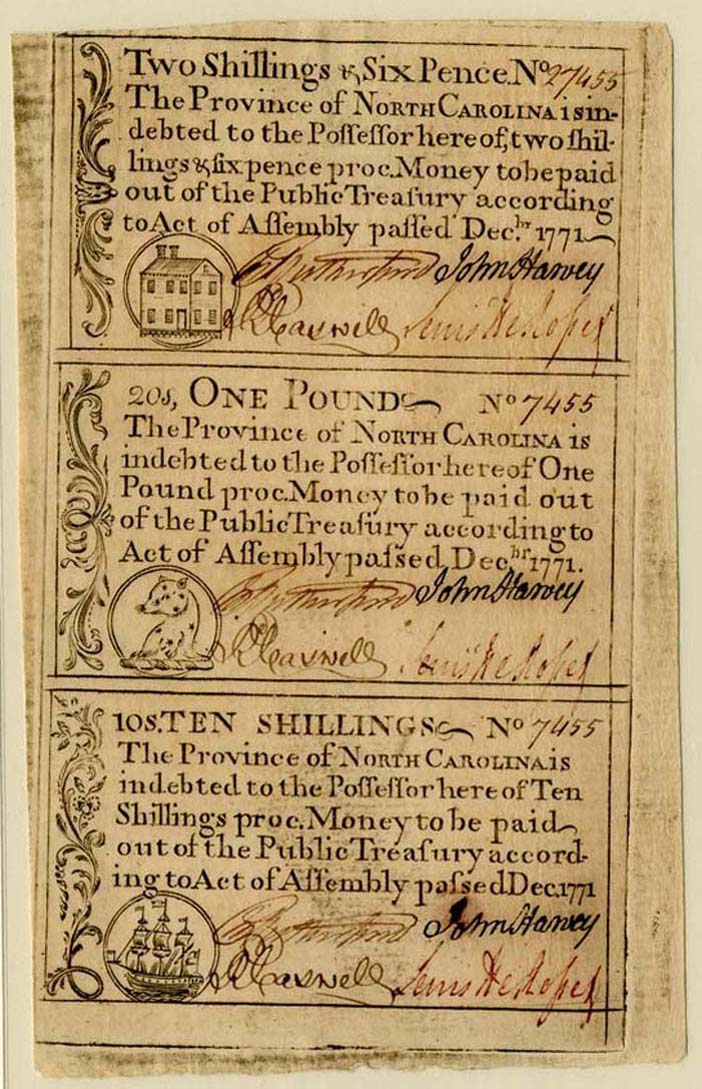 Two Shillings & Six Pence. No 27455
The Province of NORTH CAROLINA is in-
debted to the Poſſeſſor here of, two ſhil-
lings & ſix pence proc. Money to be paid
out of the Public Treaſury according
to Act of Aſſembly paſſed Decbr. 1771
Rutherfurd John Harvey
R Caswell Lewis De Rosset
20s, ONE POUND No 7455
The Province of NORTH CAROLINA is
indebted to the Poſſeſſor here of One
Pound proc. Money to be paid out
of the Public Treaſury according to
Act of Aſſembly paſsed Decbr 1771.
Rutherfurd John Harvey
R Caswell Lewis De Rosset
10s. TEN SHILLINGS No 7455
The Province of NORTH CAROLINA is
indebted to the Poſſeſſor here of Ten
Shillings proc. Money to be paid
out of the Public Treaſury accord-
ing to Act of Aſſembly paſsed Dec. 1771
Rutherfurd John Harvey
R Caswell Lewis De Rosset